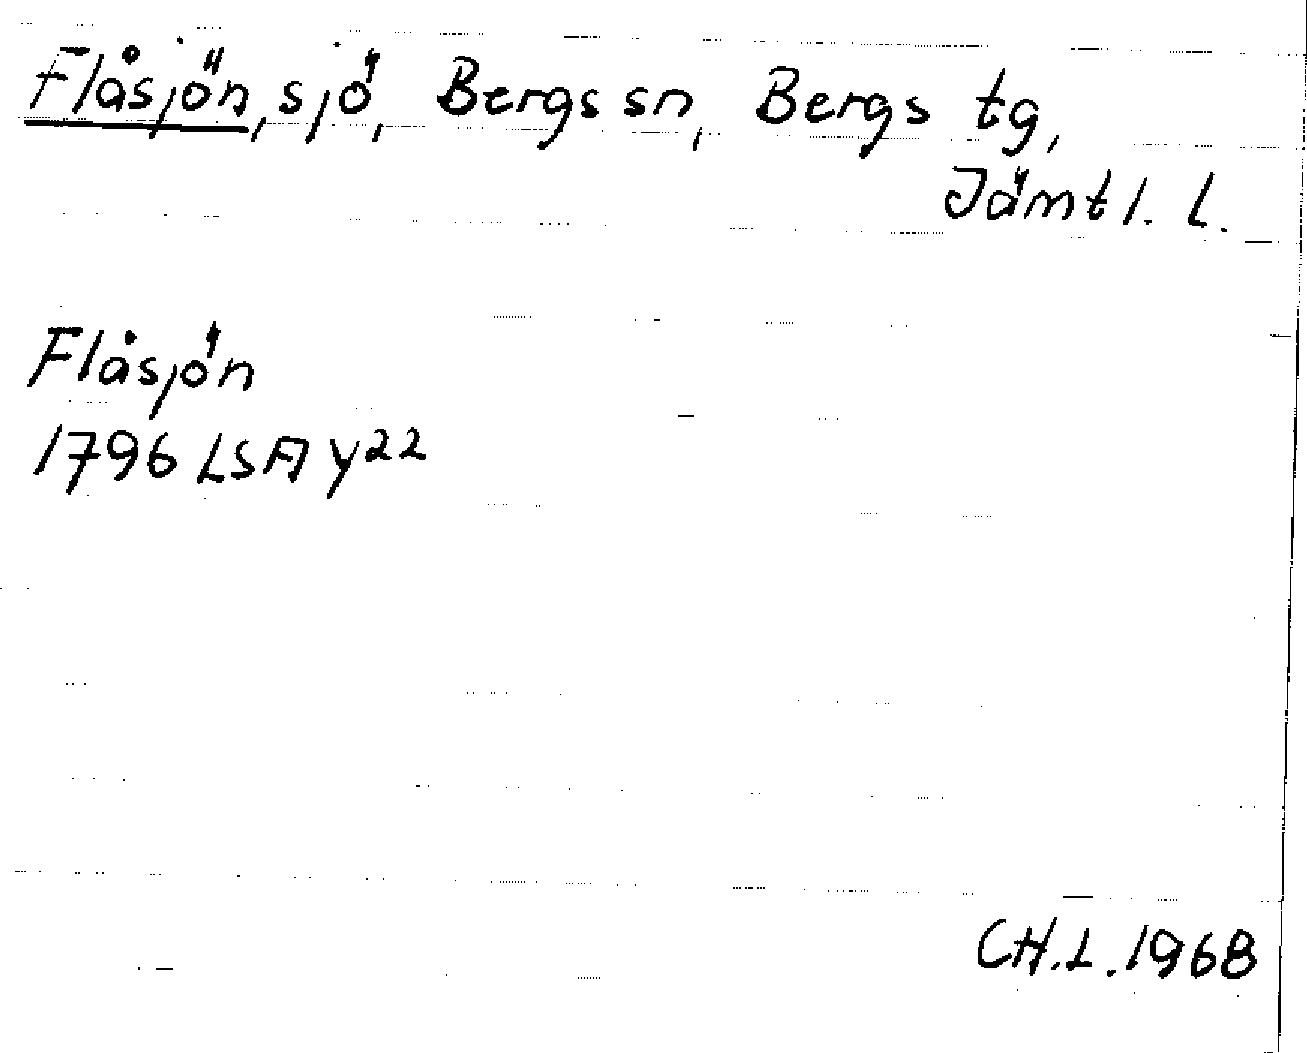 Flåsjön, sjö, Bergs sn, Bergs tg,
Jämtl. l.
Flåsjön
1796 LSA y22
CH.L. 1968